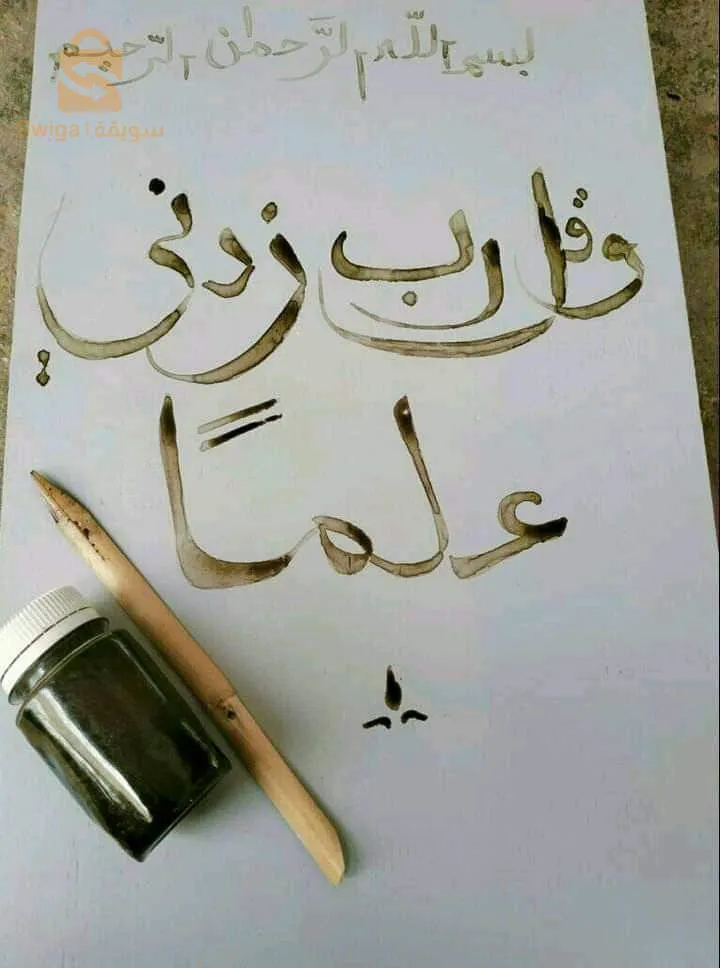 بسم اللّه الرَّحمان الرّحيم
Swiga | سويقة
وقل رب زدني
علمًا